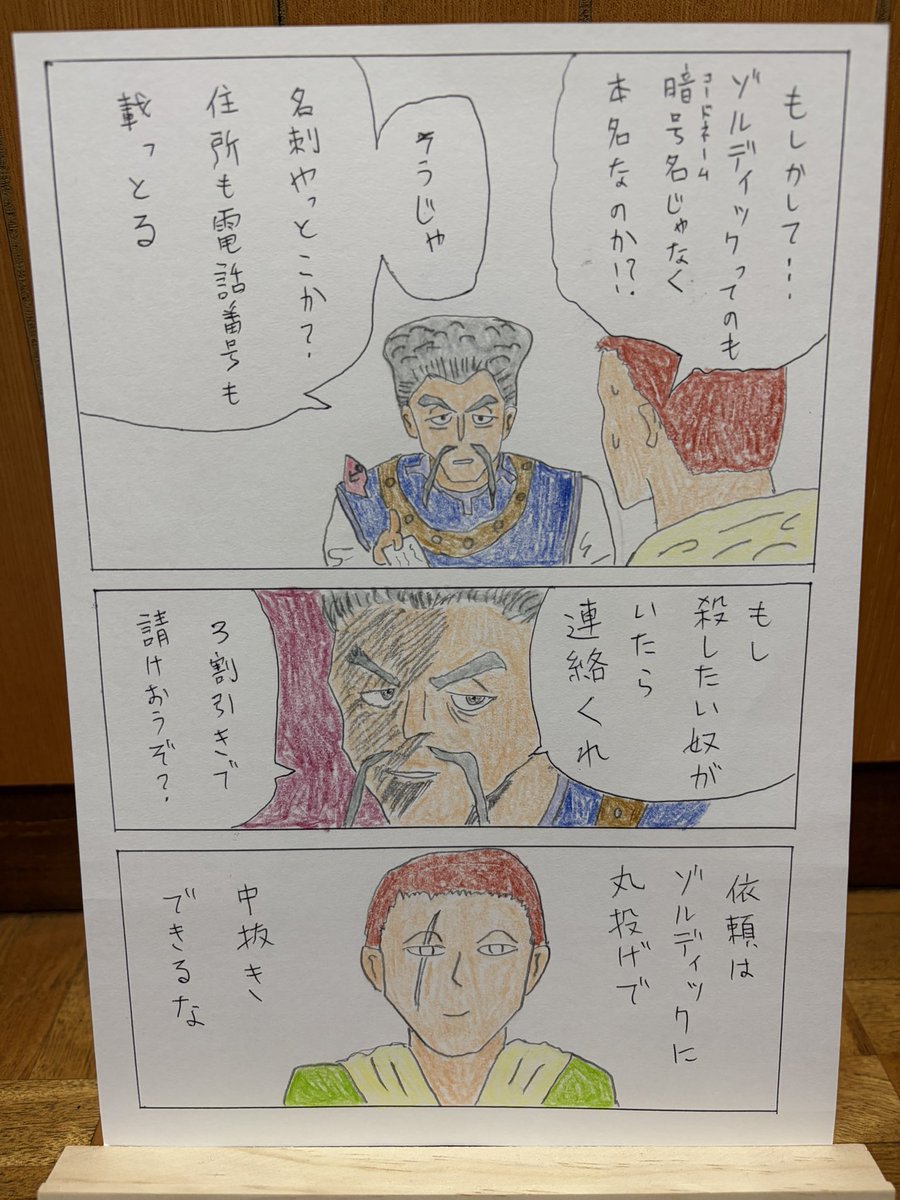 もしかして・・・
ゾルディックってのも
暗号名じゃなく
コードネーム
本名なのか!?
そうじゃ
名刺やっとこか?
住所も電話番号も
載っとる
もし
殺したい奴が
いたら
連絡くれ
3割引きで
請けおうぞ?
依頼は
ゾルディックに
丸投げで
中抜き
できるな